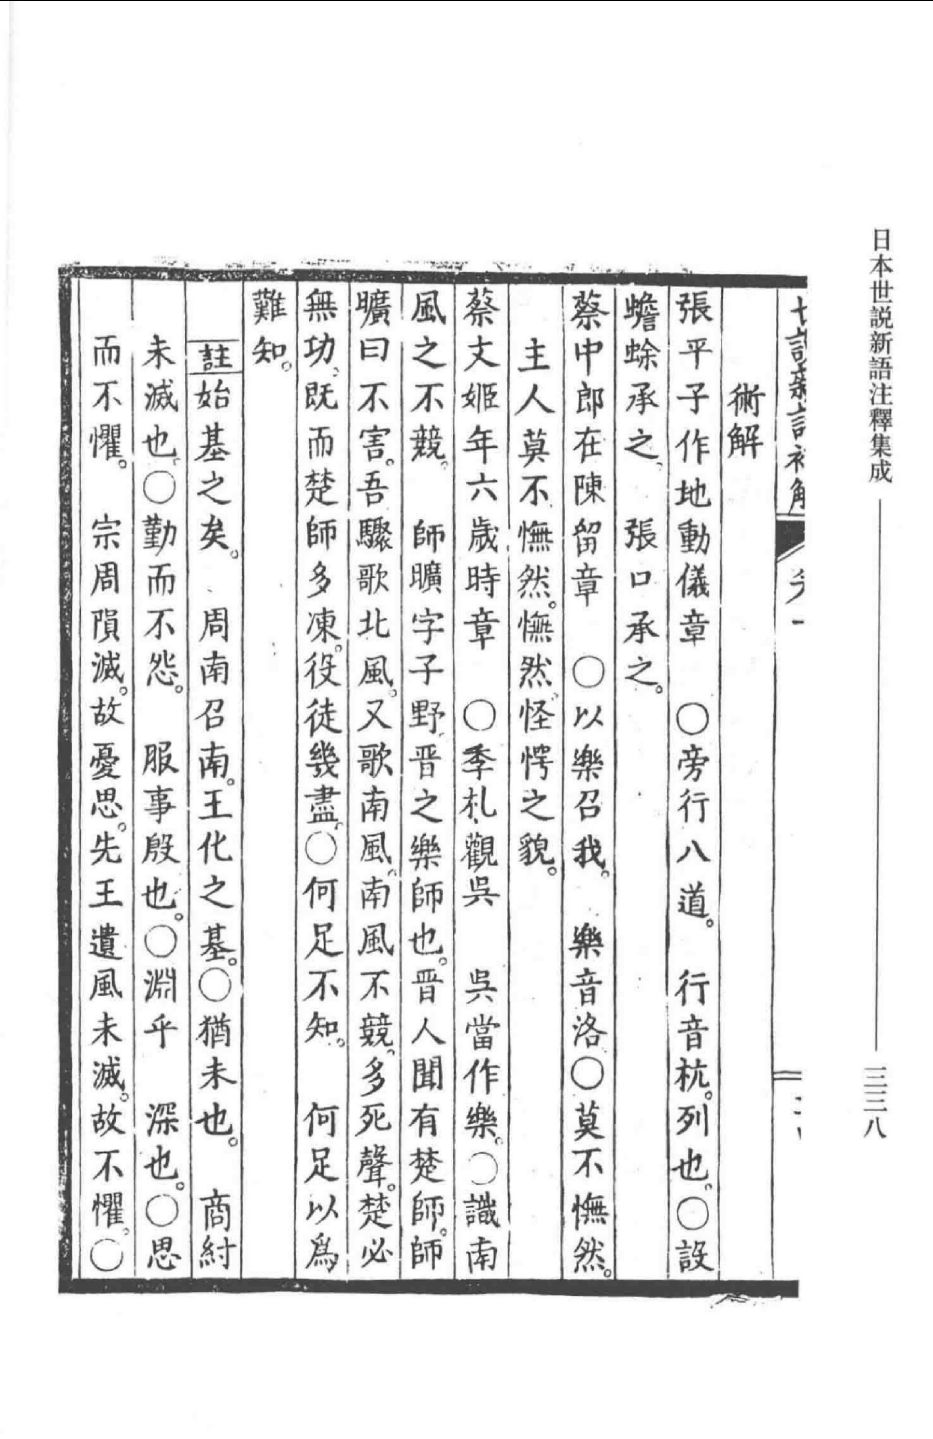 日本世説新語注釋集成
三三八
術解
張平子作地動儀章　〇旁行八道。　行音杭。列也。〇設
蟾蜍承之、　張口承之。
蔡中郎在陳留章　〇以樂召我。　樂音洛〇莫不憮然。
主人莫不憮然。憮然、怪愕之貌。
蔡文姬年六歲時章　〇季札觀吳　吳當作樂。〇識南
風之不競。　師曠字子野、晋之樂師也。晋人聞有楚師。師
曠曰不害。吾驟歌北風。又歌南風。南風不競、多死聲。楚必
無功、既而楚師多凍。役徒幾盡。〇何足不知。　何足以爲
難知。
註始基之矣。　周南召南。王化之基。〇猶未也。　商紂
未滅也。〇勤而不怨。　服事殷也。〇淵乎　深也。〇思
而不懼。　宗周隕滅。故憂思。先王遺風未滅。故不懼。〇